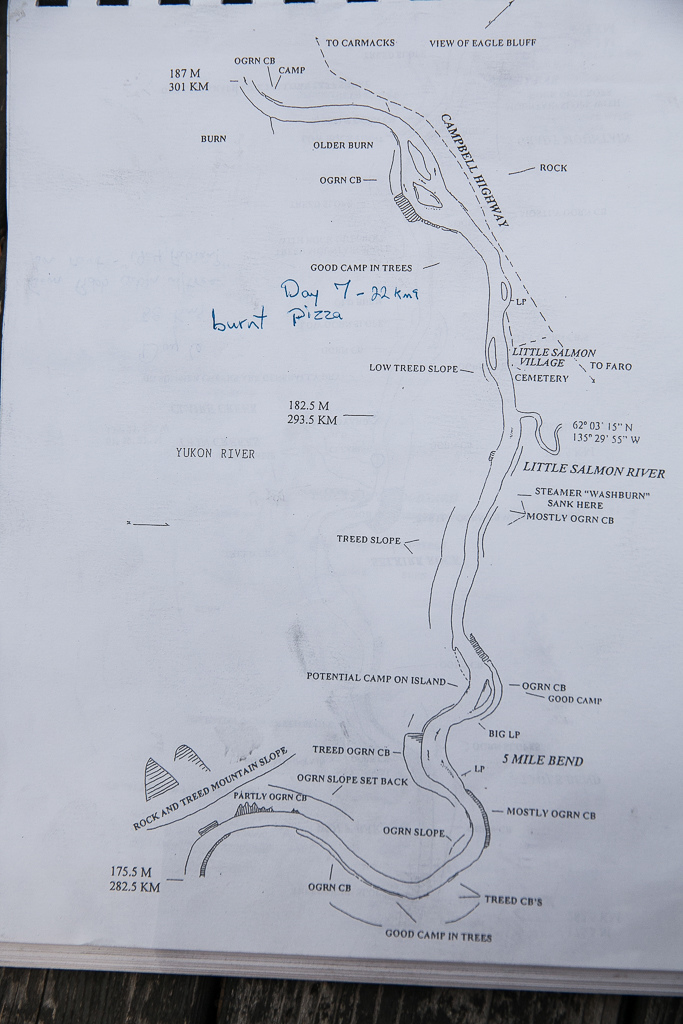 TO CARMACKS
VIEW OF EAGLE BLUFF
OGRN CB
CAMP
187 M
301 KM
BURN
OLDER BURN
CAMPBELL HIGHWAY
ROCK
OGRN CB
GOOD CAMP IN TREES
Day 7 - 22 kms
burnt pizza
LP
LITTLE SALMON
VILLAGE
TO FARO
LOW TREED SLOPE
CEMETERY
182.5 M
293.5 KM
62° 03' 15" N
135° 29' 55" W
YUKON RIVER
LITTLE SALMON RIVER
STEAMER "WASHBURN"
SANK HERE
MOSTLY OGRN CB
TREED SLOPE
POTENTIAL CAMP ON ISLAND
OGRN CB
GOOD CAMP
BIG LP
TREED OGRN CB
5 MILE BEND
LP
ROCK AND TREED MOUNTAIN SLOPE
OGRN SLOPE SET BACK
PARTLY OGRN CB
MOSTLY OGRN CB
OGRN SLOPE
175.5 M
282.5 KM
OGRN CB
TREED CB'S
GOOD CAMP IN TREES